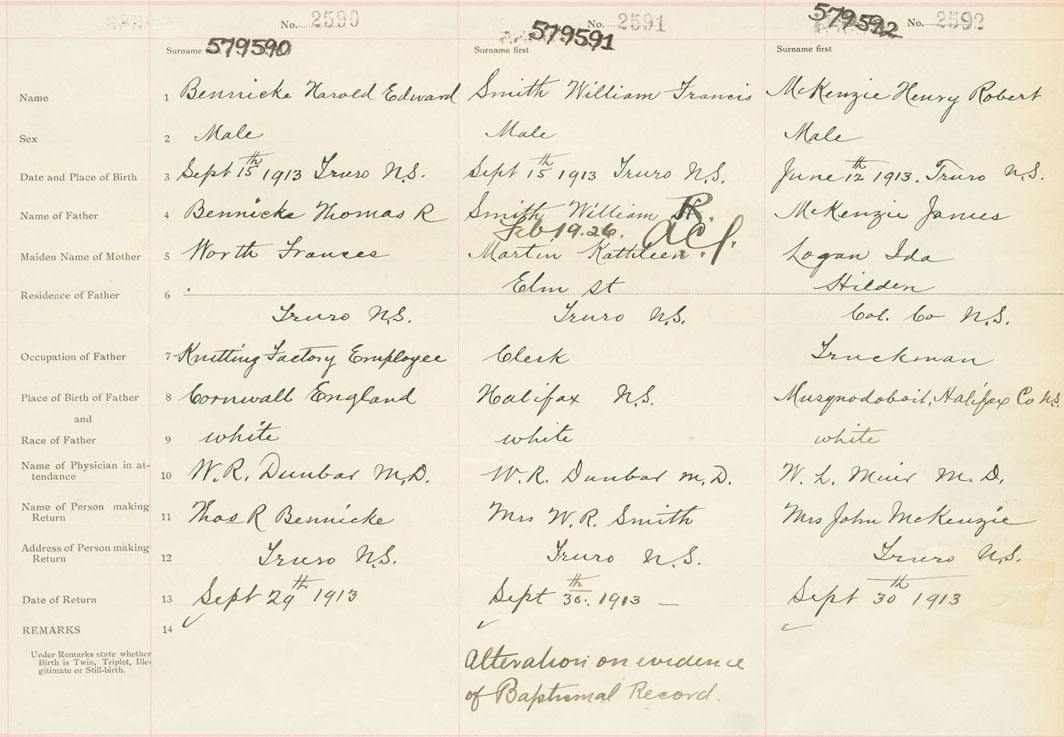 No. 2590 No. 2591 No. 2592
579590 579591 579592
Surname first Surname first Surname first
Name 1 Bennicke Harold Edward Smith William Francis McKenzie Henry Robert
Sex 2 Male Male Male
Date and Place of Birth 3 Sept 15th 1913 Truro N.S. Sept 15th 1913 Truro N.S. June 12th 1913. Truro N.S.
Name of Father 4 Bennicke Thomas R Smith William R. McKenzie James
Feb 19.26.
Maiden Name of Mother 5 Worth Frances Martin Kathleen Logan Ida
Residence of Father 6 Elm St Hilden
Truro N.S. Truro N.S. Col. Co N.S.
Occupation of Father 7 Knitting Factory Employee Clerk Truckman
Place of Birth of Father 8 Cornwall England Halifax N.S. Musqnodoboit, Halifax Co N.S.
and
Race of Father 9 white white white
Name of Physician in at-
tendance 10 W.R. Dunbar M.D. W.R. Dunbar M.D. W. L. Muir M.D.
Name of Person making
Return 11 Thos R Bennicke Mrs W.R. Smith Mrs John McKenzie
Address of Person making
Return 12 Truro N.S. Truro N.S. Truro N.S.
Date of Return 13 Sept 29th 1913 Sept 30th. 1913 — Sept 30th 1913
REMARKS 14
Under Remarks state whether
Birth is Twin, Triplet, Ille-
gitimate or Still-birth.
Alteration on evidence
of Baptismal Record.